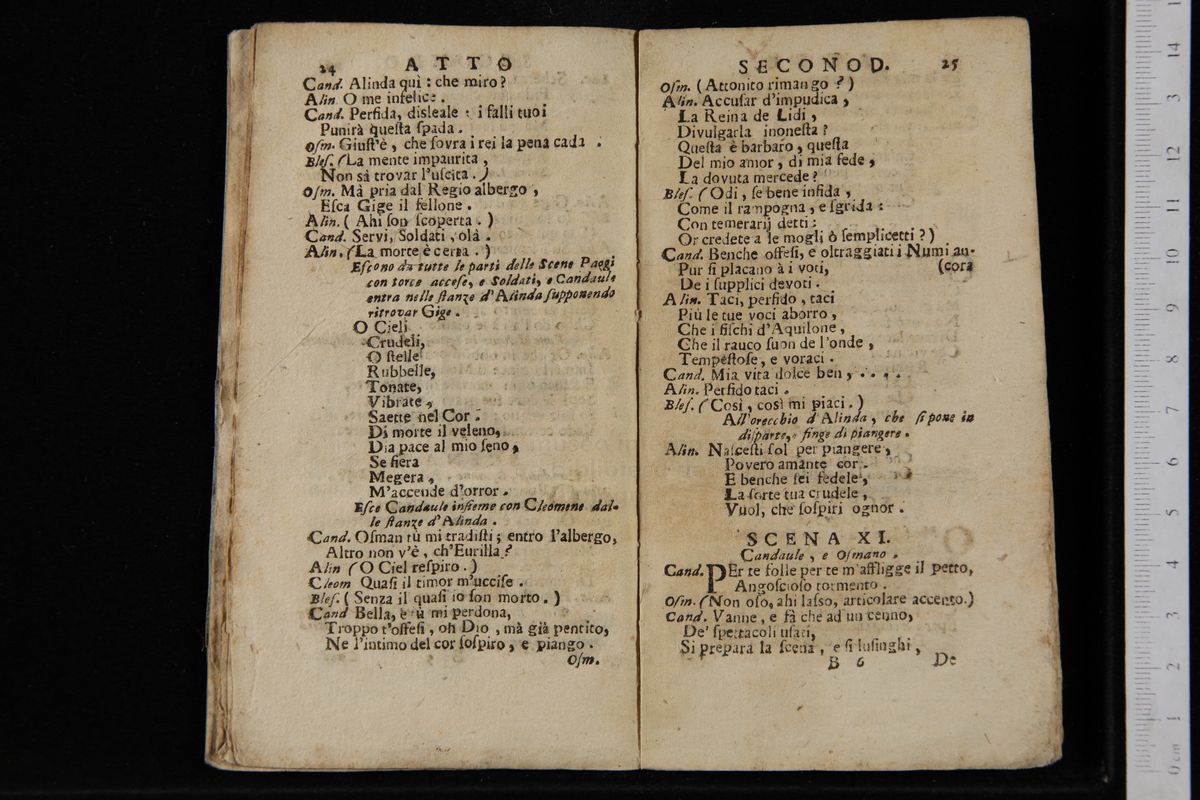 24 ATTO
Cand. Alinda quì : che miro?
Alin O me infelice.
Cand. Perfida, disleale : i falli tuoi
Punirà questa spada.
Osm. Giust'è, che sovra i rei la pena cada.
Bles. (La mente impaurita,
Non sà trovar l'uscita.)
Osm. Mà pria dal Regio albergo,
Esca Gige il fellone.
Alin. (Ahi son scoperta.)
Cand. Servi, Soldati, olà.
Alin. (La morte è certa.)
Escono da tutte le parti delle Scene Paggi
con torce accese, e Soldati, e Candaule
entra nelle stanze d'Alinda supponendo
ritrovar Gige.
O Cieli
Crudeli,
O stelle
Rubbelle,
Tonate,
Vibrate,
Saette nel Cor.
Di morte il veleno,
Dia pace al mio seno,
Se fiera
Megera,
M'accende d'orror.
Esce Candaule insieme con Cleomene dal-
le stanze d'Alinda.
Cand. Osman tù mi tradisti; entro l'albergo,
Altro non v'è, ch'Eurilla?
Alin (O Ciel respiro.)
Cleom Quasi il timor m'uccise.
Bles. (Senza il quasi io son morto.)
Cand Bella, e tù mi perdona,
Troppo t'offesi, oh Dio, mà già pentito,
Ne l'intimo del cor sospiro, e piango.
Osm.
SECONOD. 25
Osm. (Attonito rimango?)
Alin. Accusar d'impudica,
La Reina de Lidi,
Divulgarla inonesta?
Questa è barbaro, questa
Del mio amor, di mia fede,
La dovuta mercede?
Bles. (Odi, se bene infida,
Come il rampogna, e sgrida:
Con temerarij detti:
Or credete a le mogli ò semplicetti?)
Cand. Benche offesi, e oltraggiati i Numi an-
Pur si placano à i voti, (cora
De i supplici devoti.
Alin. Taci, perfido, taci
Più le tue voci aborro,
Che i fischi d'Aquilone,
Che il rauco suon de l'onde,
Tempestose, e voraci.
Cand. Mia vita dolce ben, ....
Alin. Perfido taci.
Bles. (Così, così mi piaci.)
All'orecchio d'Alinda, che si pone in
disparte, e finge di piangere.
Alin. Nascesti sol per piangere,
Povero amante cor.
E benche sei fedele,
La sorte tua crudele,
Vuol, che sospiri ognor.
SCENA XI.
Candaule, e Osmano.
Cand. PEr te folle per te m'affligge il petto,
Angoscioso tormento.
Osm. (Non oso, ahi lasso, articolare accento.)
Cand. Vanne, e fà che ad un cenno,
De' spettacoli usati,
Si prepara la scena, e si lusinghi,
B 6 De